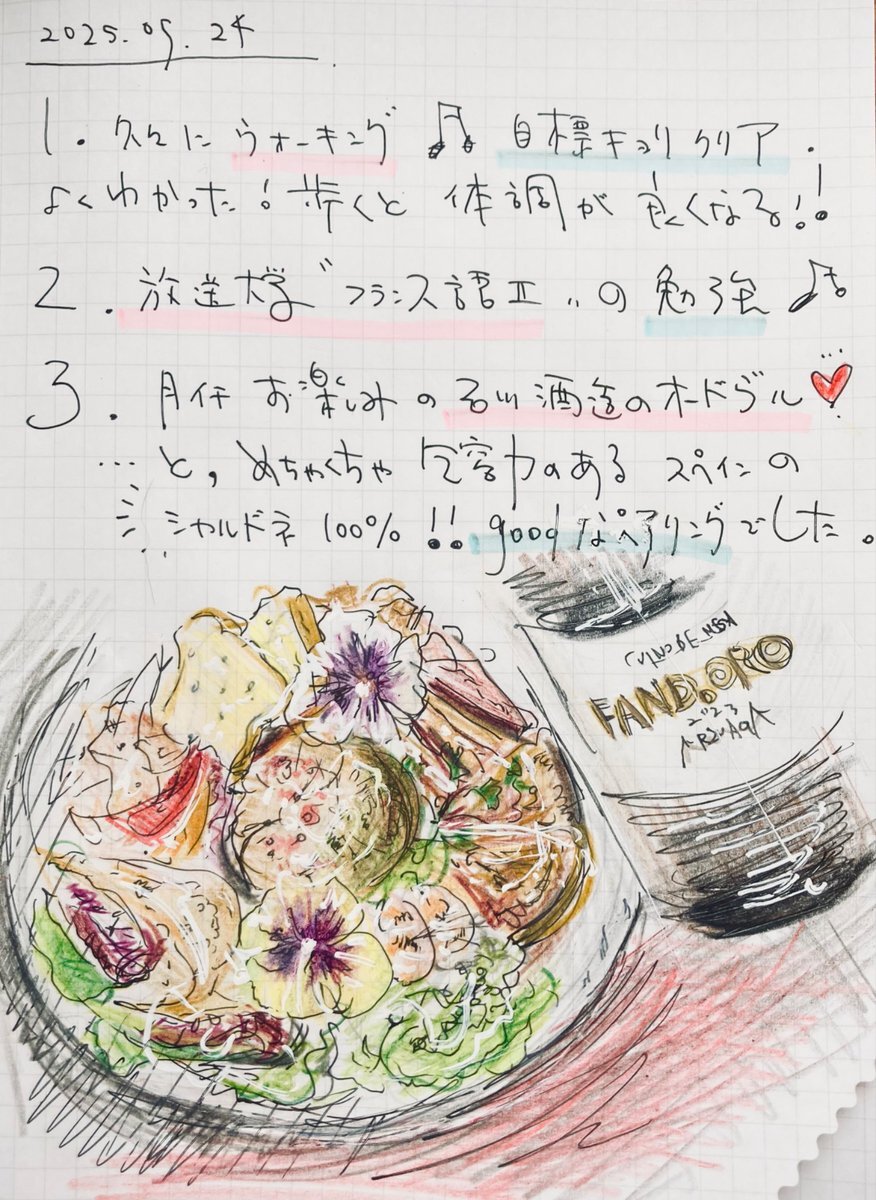 2025.09.24
1. 久々に ウォーキング 目標キョリ クリア.
よくわかった! 歩くと 体調が 良くなる!!
2. 放送大学 "フランス語Ⅱ" の 勉強
3. 月イチ お楽しみ の 石川酒造のオードヴル ♥
… と, めちゃくちゃ 包容力のある スペインの
シャルドネ 100% !! good なペアリングでした.
FANDORO
2023